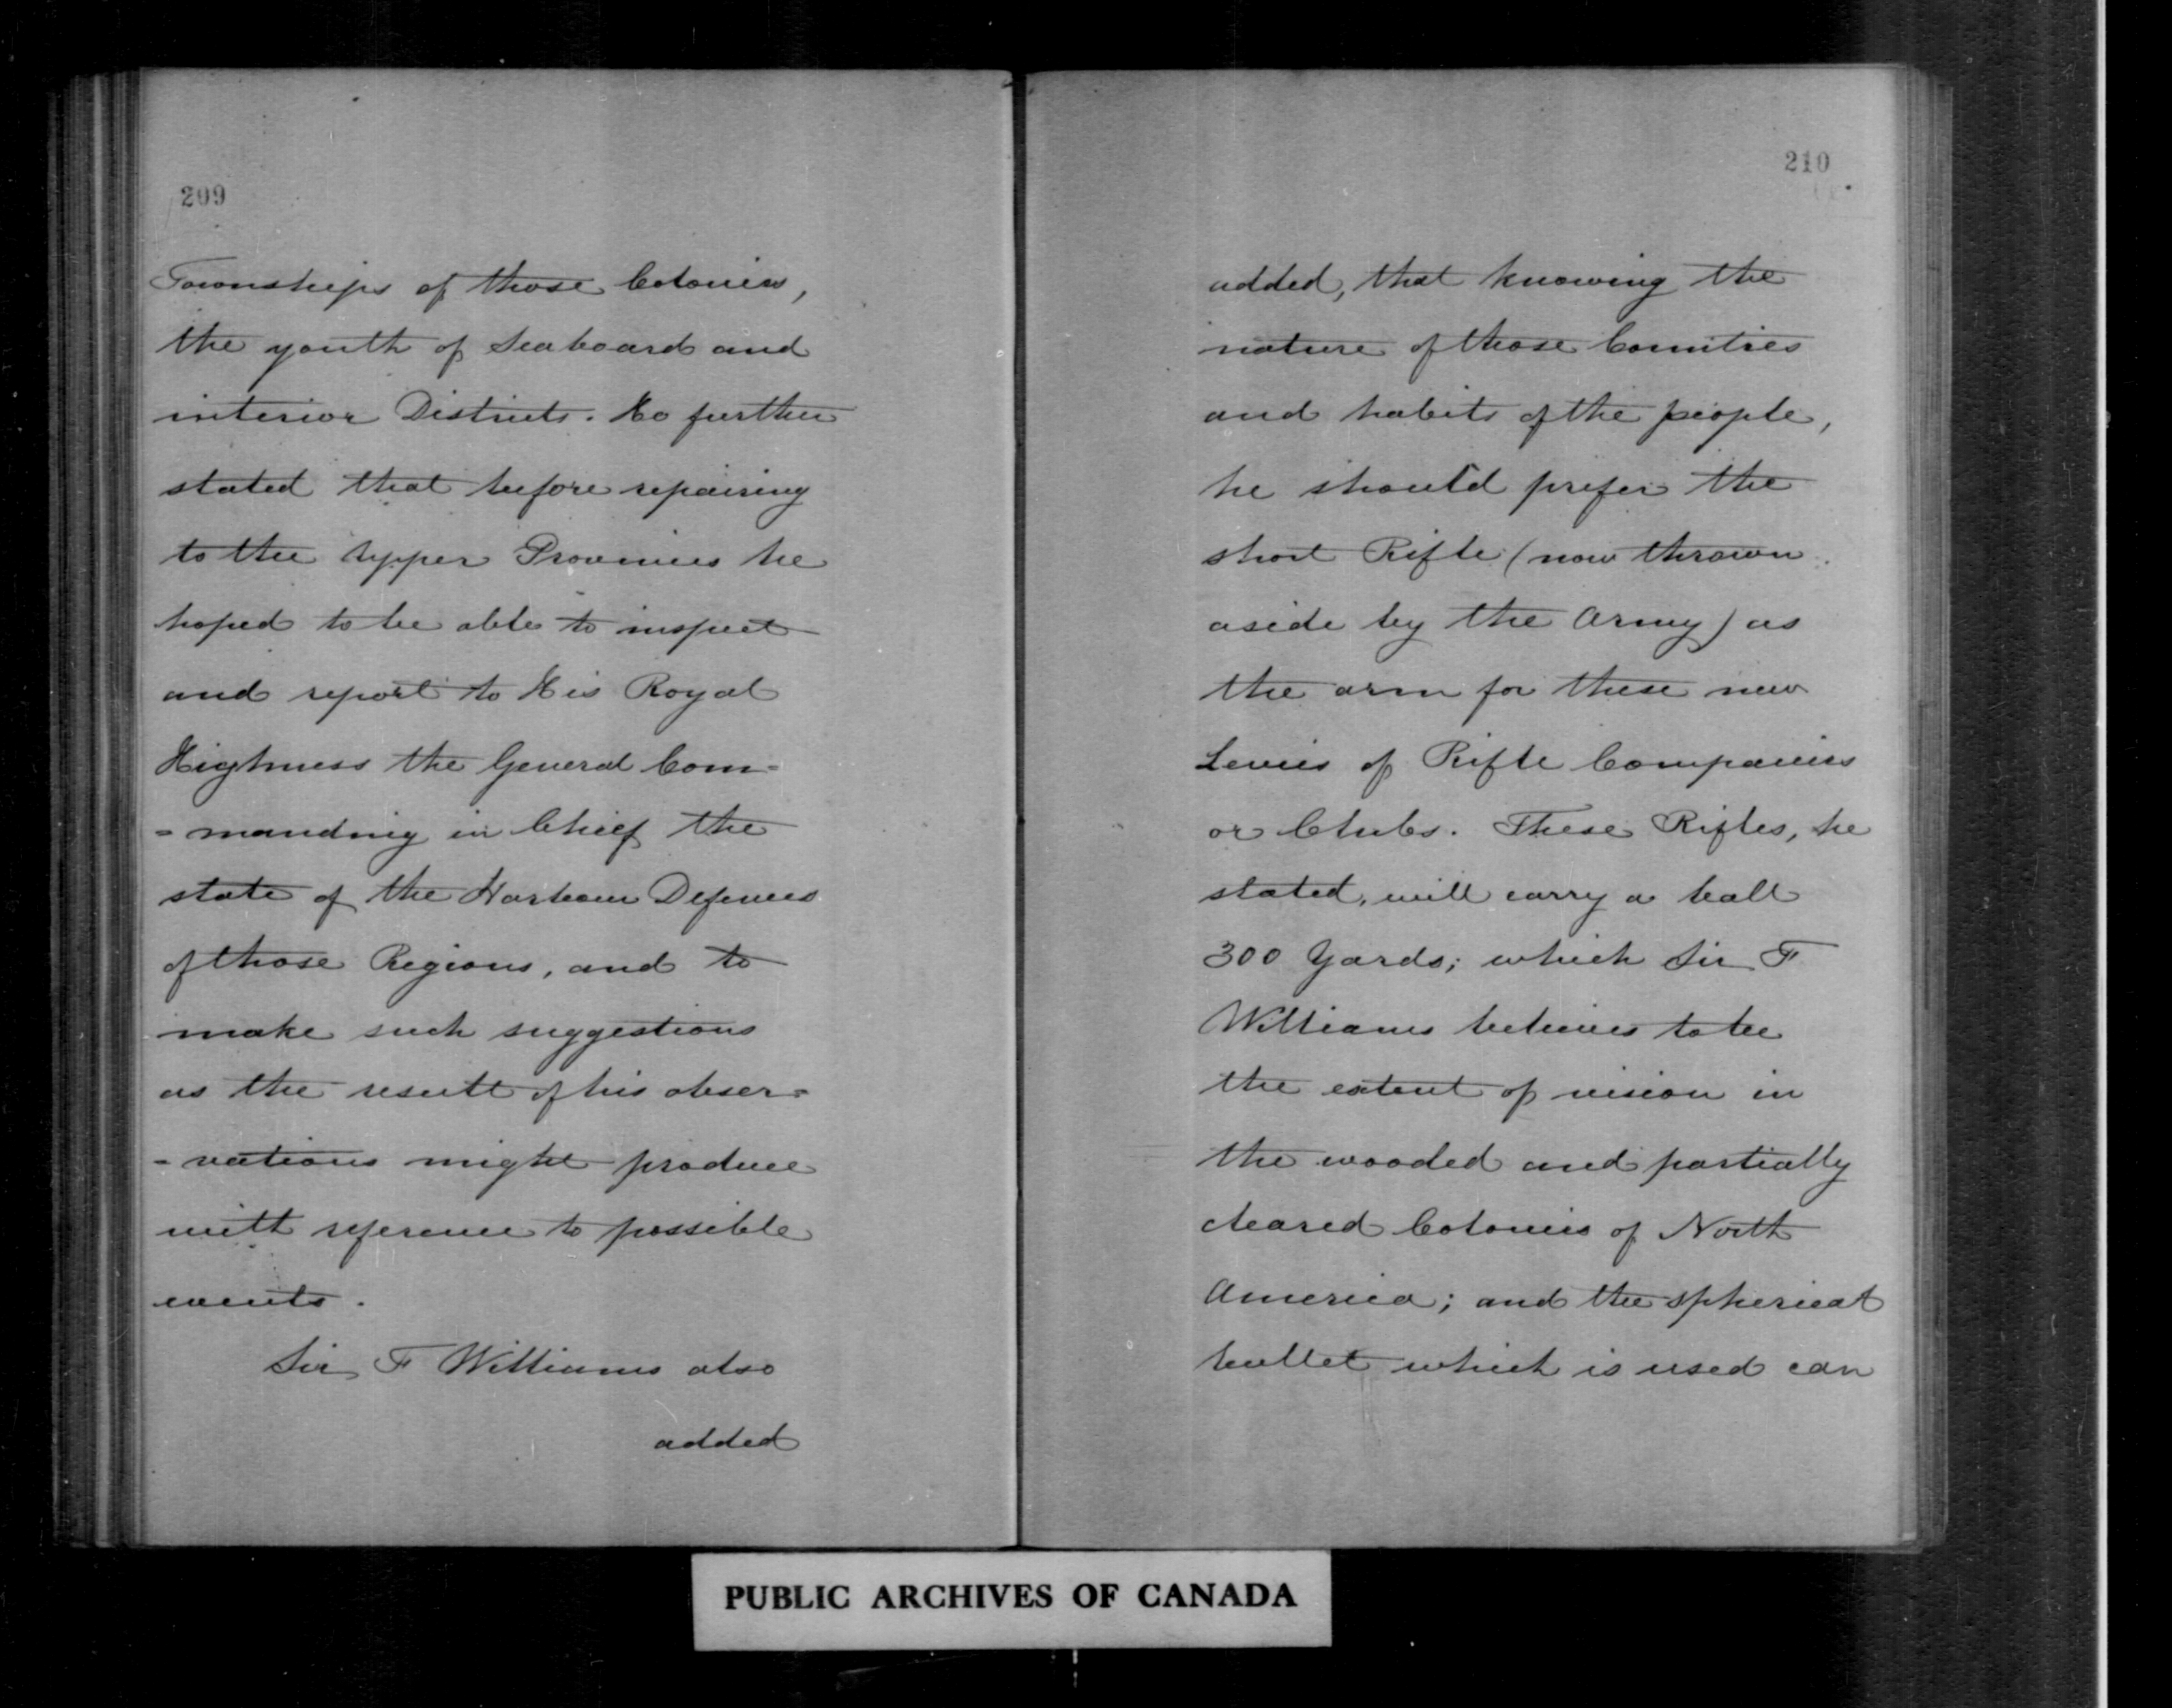 209
Townships of those Colonies,
the youth of Seaboard and
interior Districts. He further
stated that before repairing
to the Upper Provinces he
hoped to be able to inspect
and report to His Royal
Highness the General Com=
=manding in Chief the
state of the Harbour Defences
of those Regions, and to
make such suggestions
as the result of his obser=
=vations might produce
with reference to possible
events.
Sir F Williams also
added
210
added, that knowing the
nature of those Countries
and habits of the people,
he should prefer the
short Rifle (now thrown
aside by the Army) as
the arm for these new
Levies of Rifle Companies
or Clubs. These Rifles, he
stated, will carry a ball
300 Yards; which Sir F
Williams believes to be
the extent of vision in
the wooded and partially
cleared Colonies of North
America; and the spherical
bullet which is used can
PUBLIC ARCHIVES OF CANADA